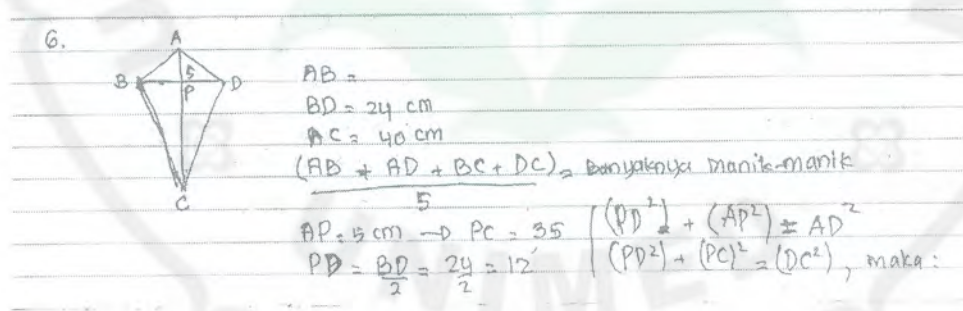 6.
A
B 5 D
P
C
AB =
BD = 24 cm
AC = 40 cm
(AB + AD + BC + DC) = Banyaknya manik-manik
5
AP = 5 cm → PC = 35 | (PD²) + (AP²) = AD²
PD = BD/2 = 24/2 = 12 | (PD²) + (PC)² = (DC²), maka :